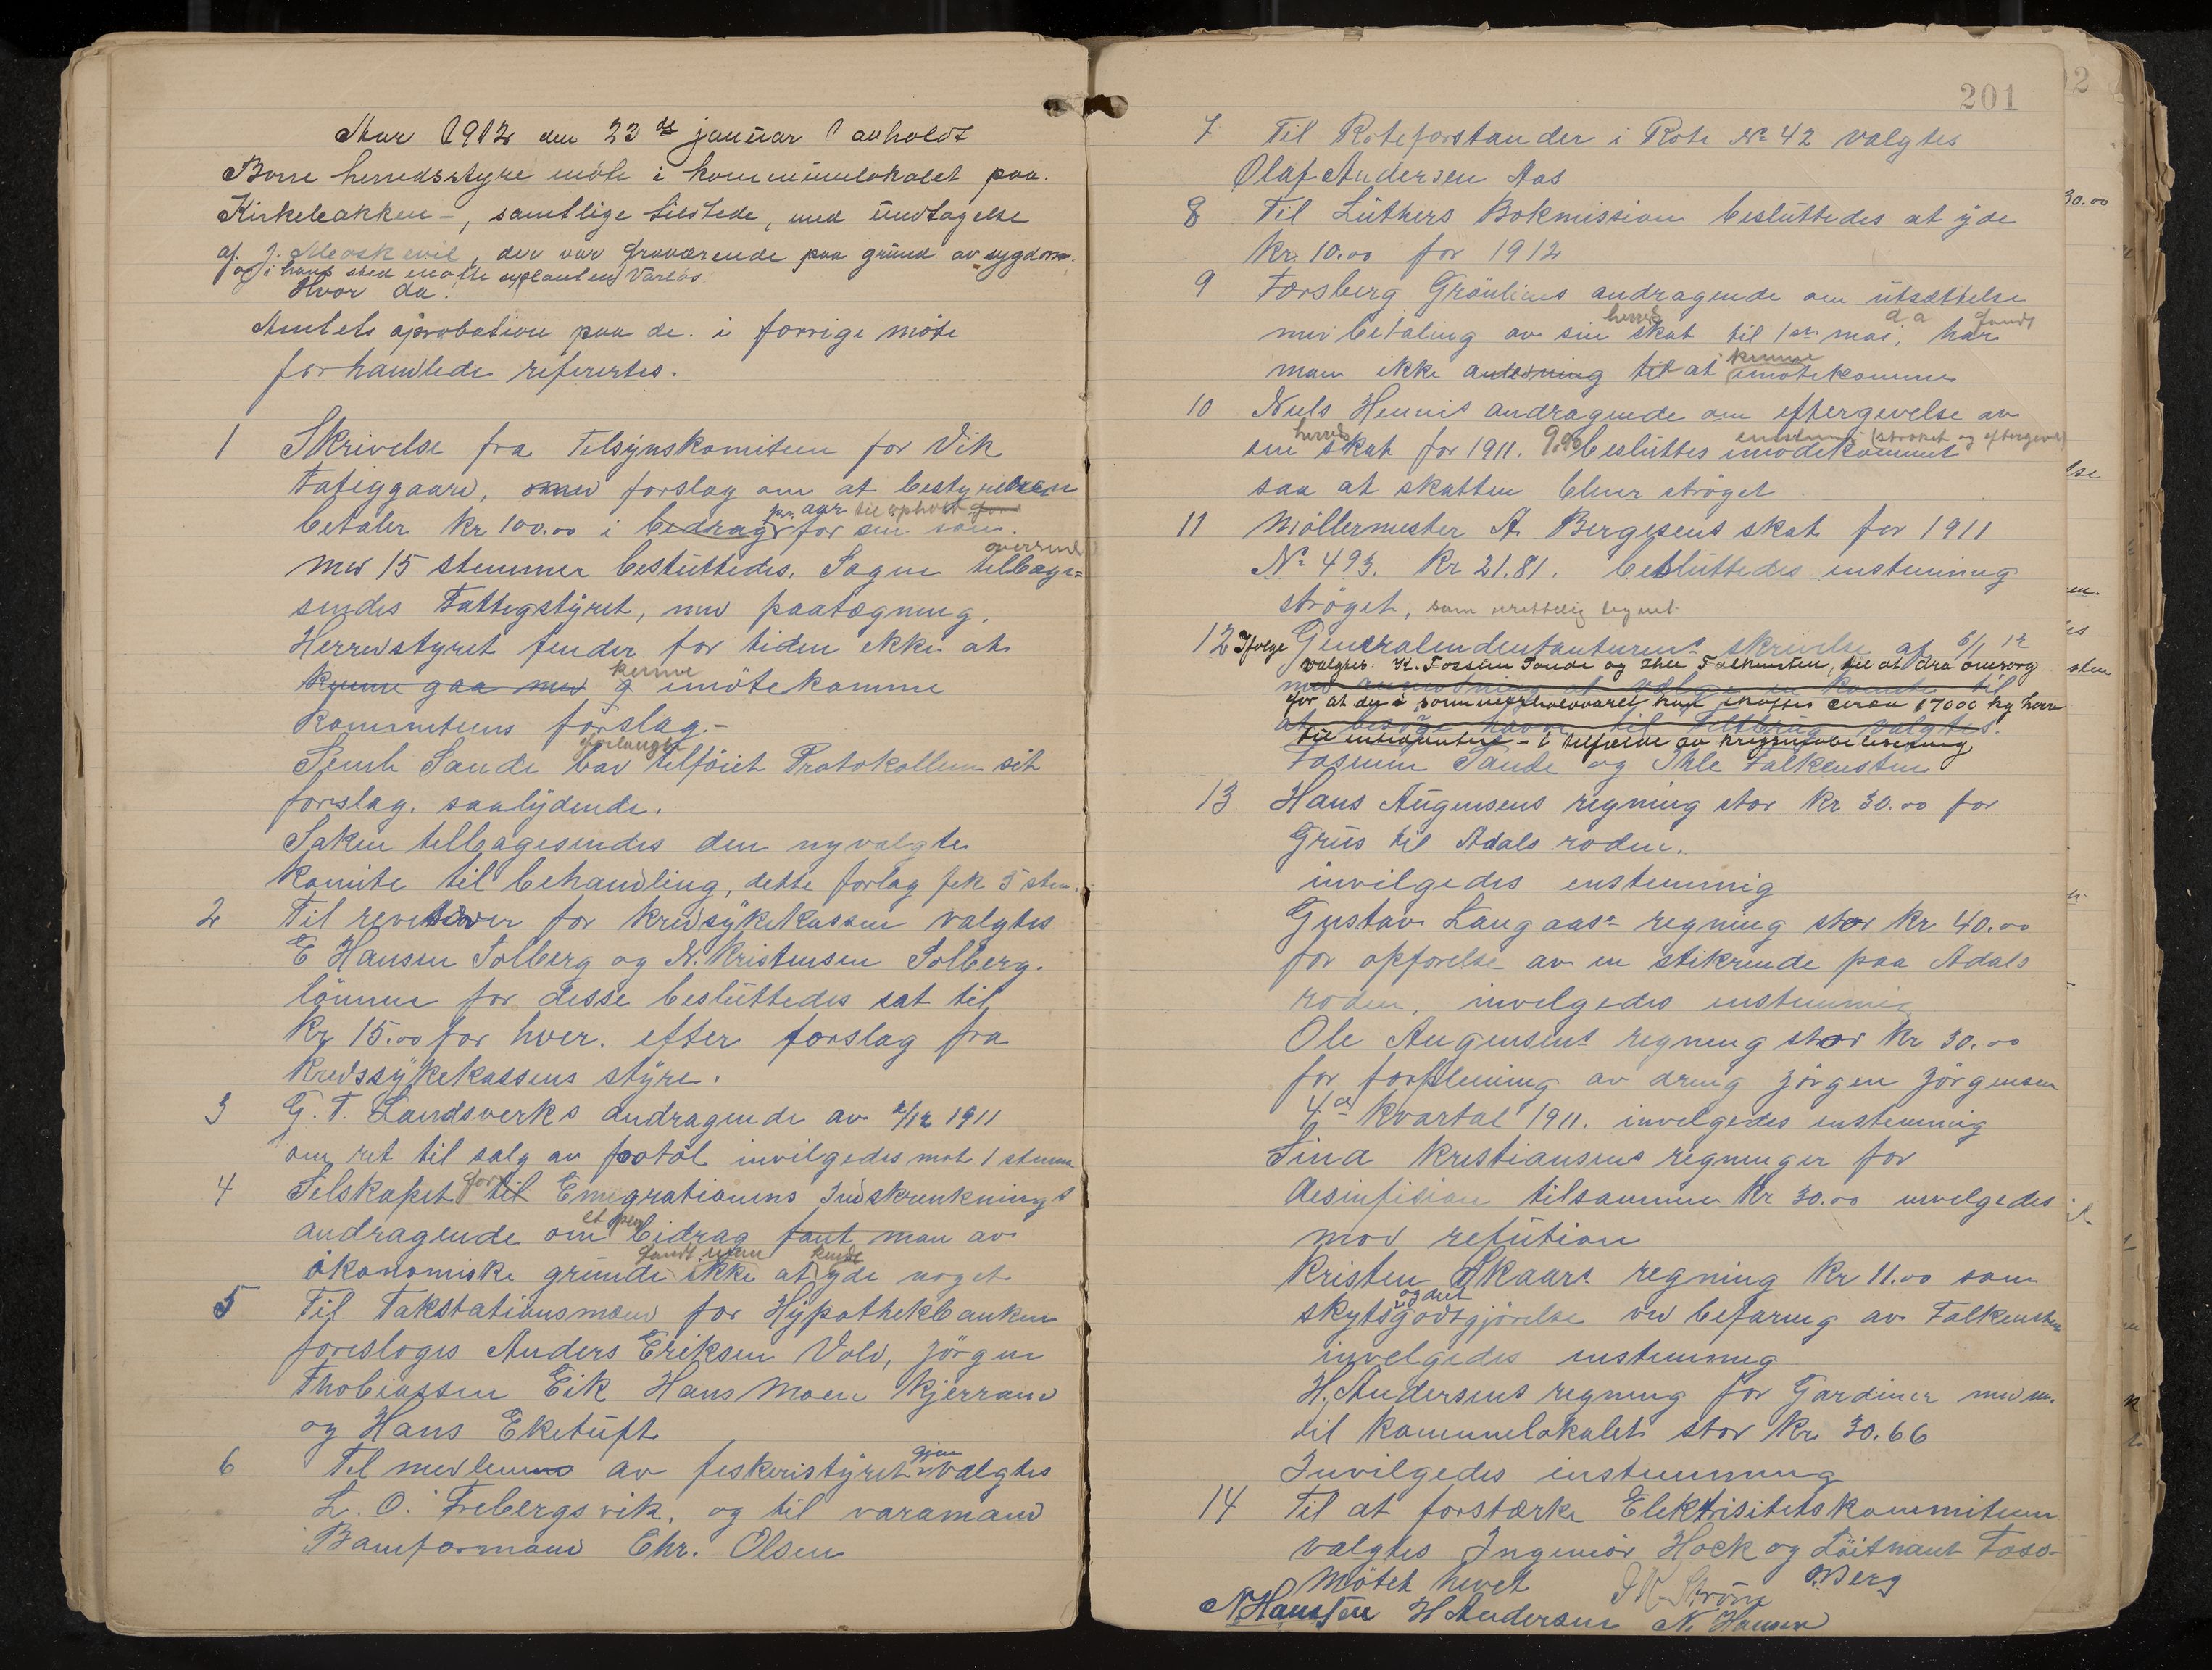 Aar 1912 den 23de januar avholdt
Borre herredsstyre möte i kommunelokalet paa.
Kirkebakken -, samtlige tilstede, med undtagelse
af. J. , der var fraværende paa grund av sygdom.
og i hans sted mötte suplanten Varlös.
Hvor da:
Amtets aprobation paa de. i forrige möte
forhandlede referertes.
1 Skrivelse fra Tilsynskomiteen for Vik
Fatiggaard, med forslag om at bestyreren
pr. aar til ophold
betaler kr 100.00 i bedrag for sin sön.
oversend
med 15 stemmer besluttedes. Sagen tilbage=
sendes Fattigstyret, med paategning.
Herredstyret finder for tiden ikke at
kunne
kunne gaa med imötekomme
kommiteens forslag.-
forlangte
Semb Sande tilföiet Protokollen sit
forslag. saalydende.
Saken tilbagesendes den nyvalgte
komite til behandling, dette forlag fik 5 stm.
2 Til revisorer for kredsykekassen valgtes
E Hansen Solberg og N. Kristensen Solberg.
lönnen for disse besluttedes sat til
kr 15.00 for hver. efter forslag fra
Kredssykekassens styre.
3 G. T. Landsverks andragende av 2/12 1911
om ret til salg av invilgedes mot 1 stemme
4 Selskapet for til Emigrationens Indskrenknings
andragende om bidrag fant man av
fandt man kunde
ökonomiske grunde ikke at yde noget
5 Til Takstationsmænd for Hypothekbanken
foresloges Anders Eriksen Vold, Jörgen
Thobiassen Eik Hans Moen Kjerrand
og Hans Eketuft
gjen
6 Til medlem av feskeristyret valgtes
L. O. Frebergsvik, og til varamand
Bamformand Chr. Olsen
201
7 Til Roteforstander i Rote No 42 valgtes
Olaf Andersen Aas
8 Til Luthers Bokmission besluttedes at yde
kr. 10.00 for 1912
9 Forsberg Gröuliens andragende om utsættelse
herred da fandt
med betaling av sin skat til 1ste mai, har
kunne
man ikke anledning til at imötekomme
10 Niels Hennis andragende om eftergevelse av
herred enstemmig (ströket og eftergivet)
sin skat for 1911. 9.96 besluttes imödekommet
saa at skatten bliver ströget
11 Möllermester A. Bergesens skat for 1911
No 493. kr 21.81. besluttedes enstemmig
ströget, som urettelig lignet
12 Ifølge Generalendentanturens skrivelse af 6/1 12
valgtes K. Fossum Sande og Thle Falkensten, til at dra omsorg
med anmodning at vælge en komite til
for at der i sommerhalvaaret kan skaffes cirka 17000 kg hø
at besørge havn til feltbrug valgtes.
til intendanturen - i tilfælde av krigsmobilisering
Fossum Sande og Thle Falkensten
13 Hans Augensens regning stor kr 30.00 for
Grus til Adals roden.
invilgedes enstemmig
Gustav Langaas regning stor kr 40.00
for opforelse av en stikrende paa Adals
roden, invelgedes enstemmig
Ole Augensens regning stor kr 30.00
for forpleining av dreng Jörgen Jörgensen
4de kvartal 1911. invelgedes enstemmig
Sina Kristiansens regninger for
desinfision tilsammen kr 30.00 invelgedes
mod refution
Kristen Skaars regning kr 11.00 som
skyts godtgjörelse ved befaring av Falkensten
invelgedes enstemmig
H. Andersens regning for Gardiner med m.
til kommunelokalet stor kr 30.66
Invilgedes enstemmig
14 Til at forstærke Elektrisitetskommiteen
valgtes Ingeniör Hock og Löitnant Foss-
Mötet hevet
J K Ström O. Berg
N Hansen H Andersen N. Hansen